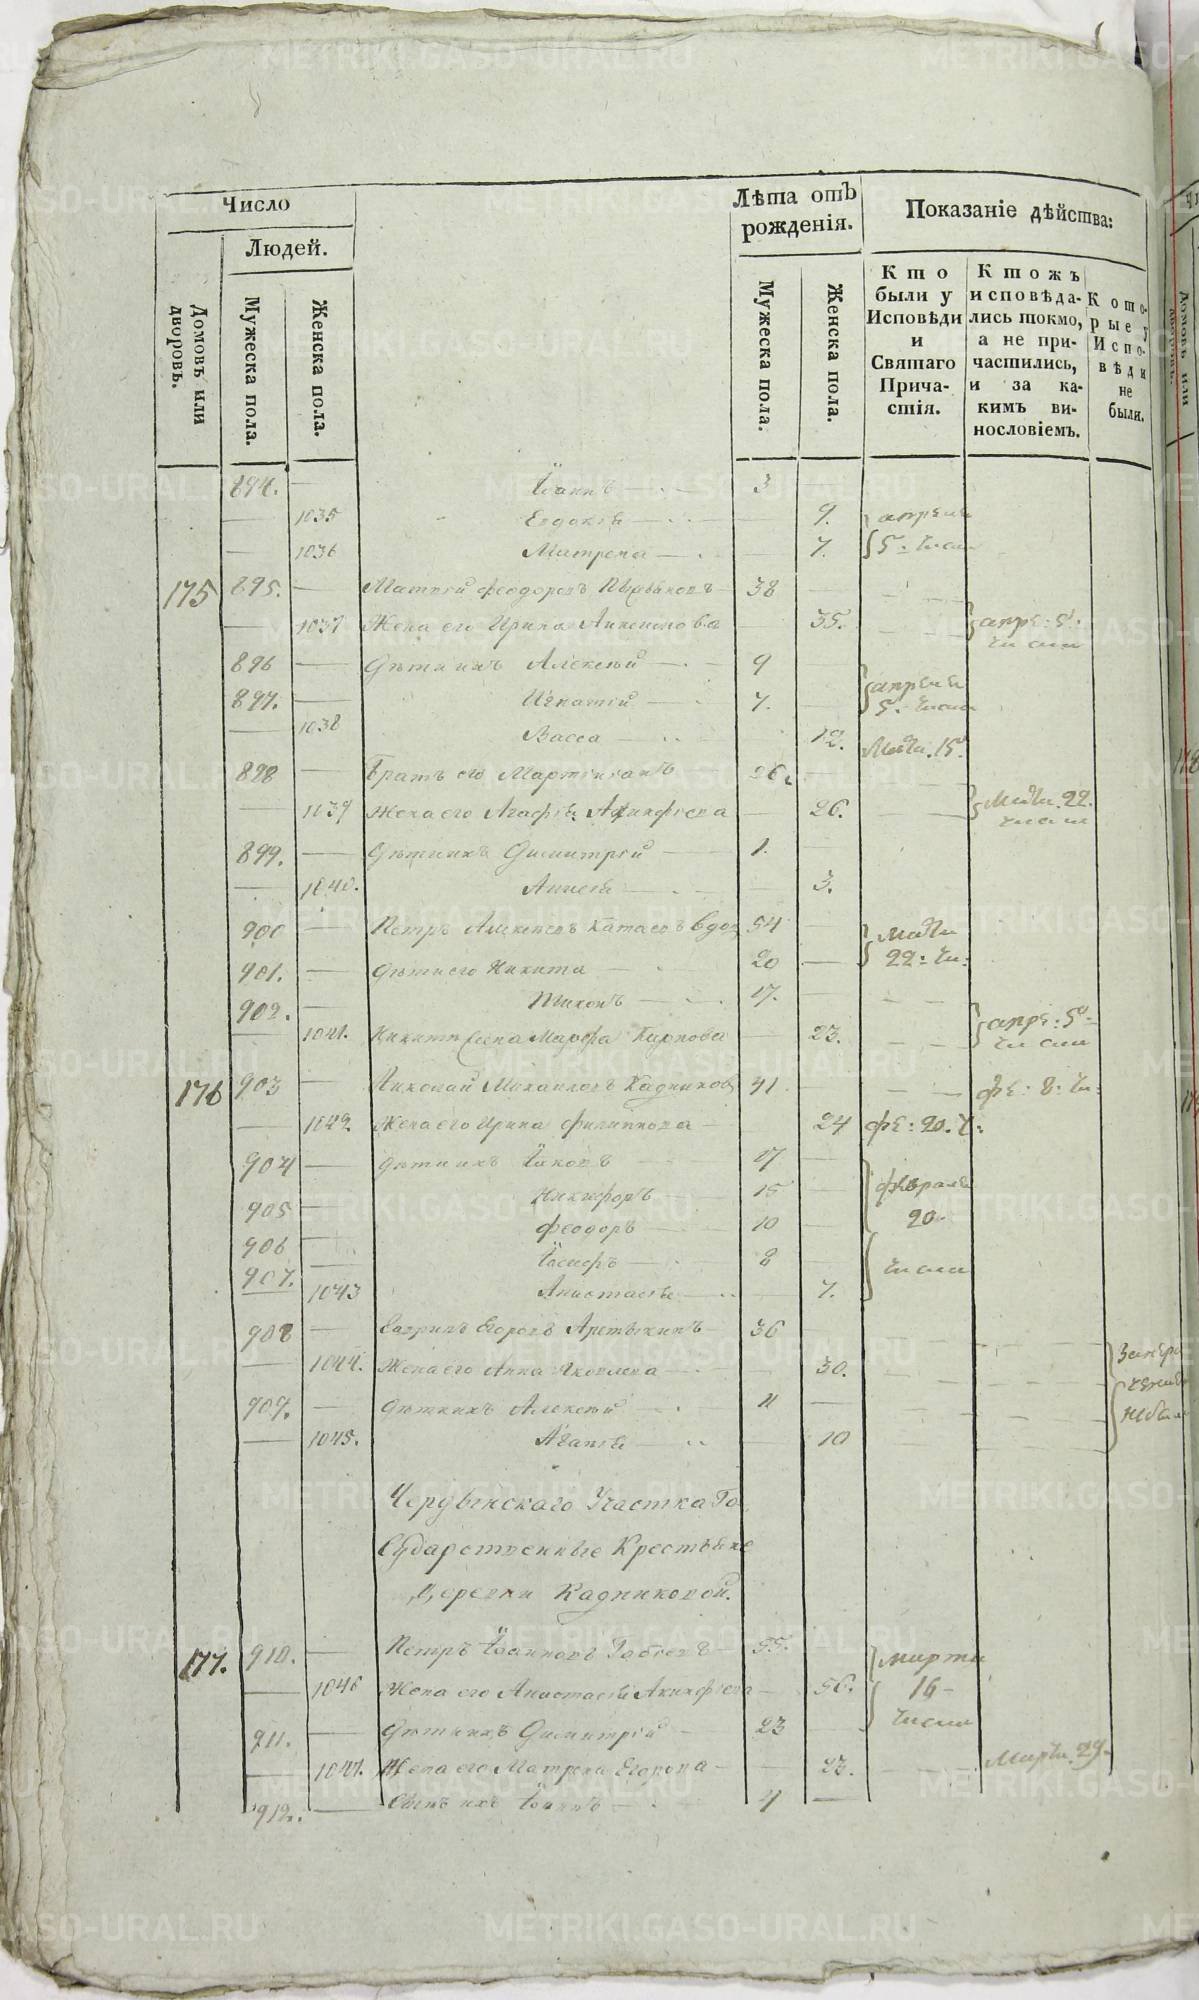 Число
Людей.
Домовъ или дворовъ.
Мужеска пола.
Женска пола.
Лѣта отъ рожденія.
Мужеска пола.
Женска пола.
Показаніе дѣйства:
Кто были у Исповѣди и Святаго Причастія.
Ктожъ исповѣдались токмо, а не причастились, и за какимъ винословіемъ.
Которые у Исповѣди не были.
894. — Іоаннъ — 3
— 1035 Евдокія — 9. апрѣля
— 1036 Матрена — 7. 5. числа
175 895. — Матѳей Феодоровъ 38
— 1037 Жена его Ирина 35. апрѣ: 5: числа
896 — Дѣти ихъ Алексѣй — 9
897. — Игнатій — 7. апрѣля 5. числа
— 1038 Васса — 12. 15.
898 — Братъ его Мартиніанъ 26.
— 1039 Жена его Агафія Акинфіева — 26. 22. числа
899. — Дѣти ихъ Димитрій — 1.
— 1040. — 3.
900 — Петръ Алексѣевъ Катаевъ вдов 54
901. — Дѣти его Никита — 20 22: чи:
902. — Тихонъ — 17.
— 1041. Никиты жена Марфа Карпова — 23. апрѣ: 5 числа
176 903 — Николай Михаиловъ Кадниковъ 41. — фе: 8: чи:
— 1042. Жена его Ирина Филиппова — 24 фе: 20. ч:
904 — Дѣти ихъ Іаковъ 17
905 — Никифоръ — 15 февраля
906 — Феодоръ — 10 20
907. — Іосифъ — 8 числа
1043 Анастасія — 7.
908 — Гаврилъ Егоровъ 36
— 1044. Жена его Анна Яковлева — 30.
909. — Дѣти ихъ Алексѣй — 11
— 1045. Агапія — 10
Участка Го
сударственные Крестьяне
Деревни Кадниковой.
177. 910. — Петръ Іоанновъ 55. марта
— 1046 Жена его Анастасія Акинфіева — 56. 16
911. — Дѣти ихъ Димитрій — 23 числа
— 1047. Жена его Матрена Егорова — 23. — Марта. 29.
912. — Сынъ ихъ Іоаннъ — 4 —
METRIKI.GASO-URAL.RU